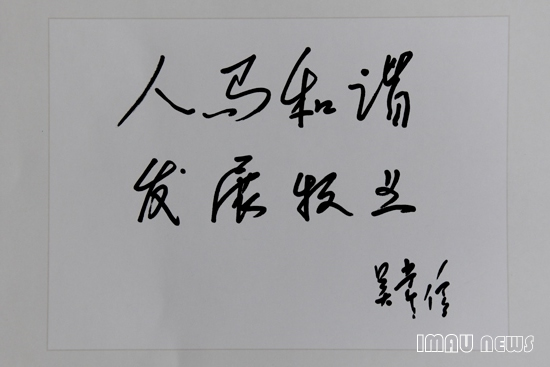 人马和谐
发展牧业
吴常信
IMAU news